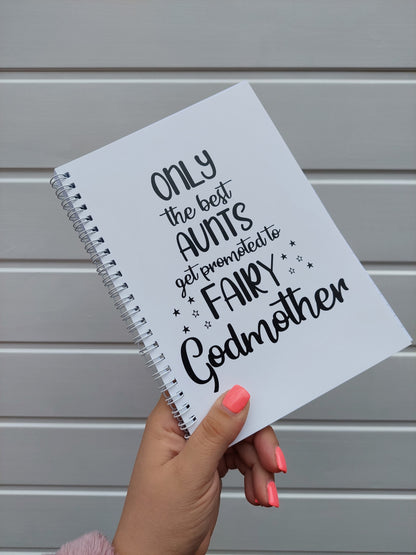 ONLY
the best
AUNTS
get promoted to
FAIRY
Godmother